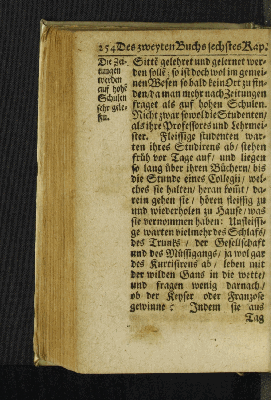 254 Des zweyten Buchs sechstes Kap.
Die Zei-
tungen
werden
auf hohẽ
Schulen
sehr gele-
sen.
Sittẽ gelehret und gelernet wer-
den solle; so ist doch wol im gemei-
nen Wesen so bald kein Ort zu fin-
den / da man mehr nach Zeitungen
fraget als auf hohen Schulen.
Nicht zwar sowol die Studenten /
als ihre Professores und Lehrmei-
ster. Fleissige studenten war-
ten ihres Studirens ab / stehen
früh vor Tage auf / und liegen
so lang über ihren Büchern / bis
die Stunde eines Collegii / wel-
ches sie halten / heran kom̃t / da-
rein gehen sie / hören fleissig zu
und wiederholen zu Hause / was
sie vernommen haben: Unfleissi-
ge warten vielmehr des Schlafs /
des Trunks / der Gesellschaft
und des Müssigangs / ja wol gar
des Kurtisirens ab / leben mit
der wilden Gans in die wette /
und fragen wenig darnach /
ob der Keyser oder Franzose
gewinne: Indem sie aus
Tag